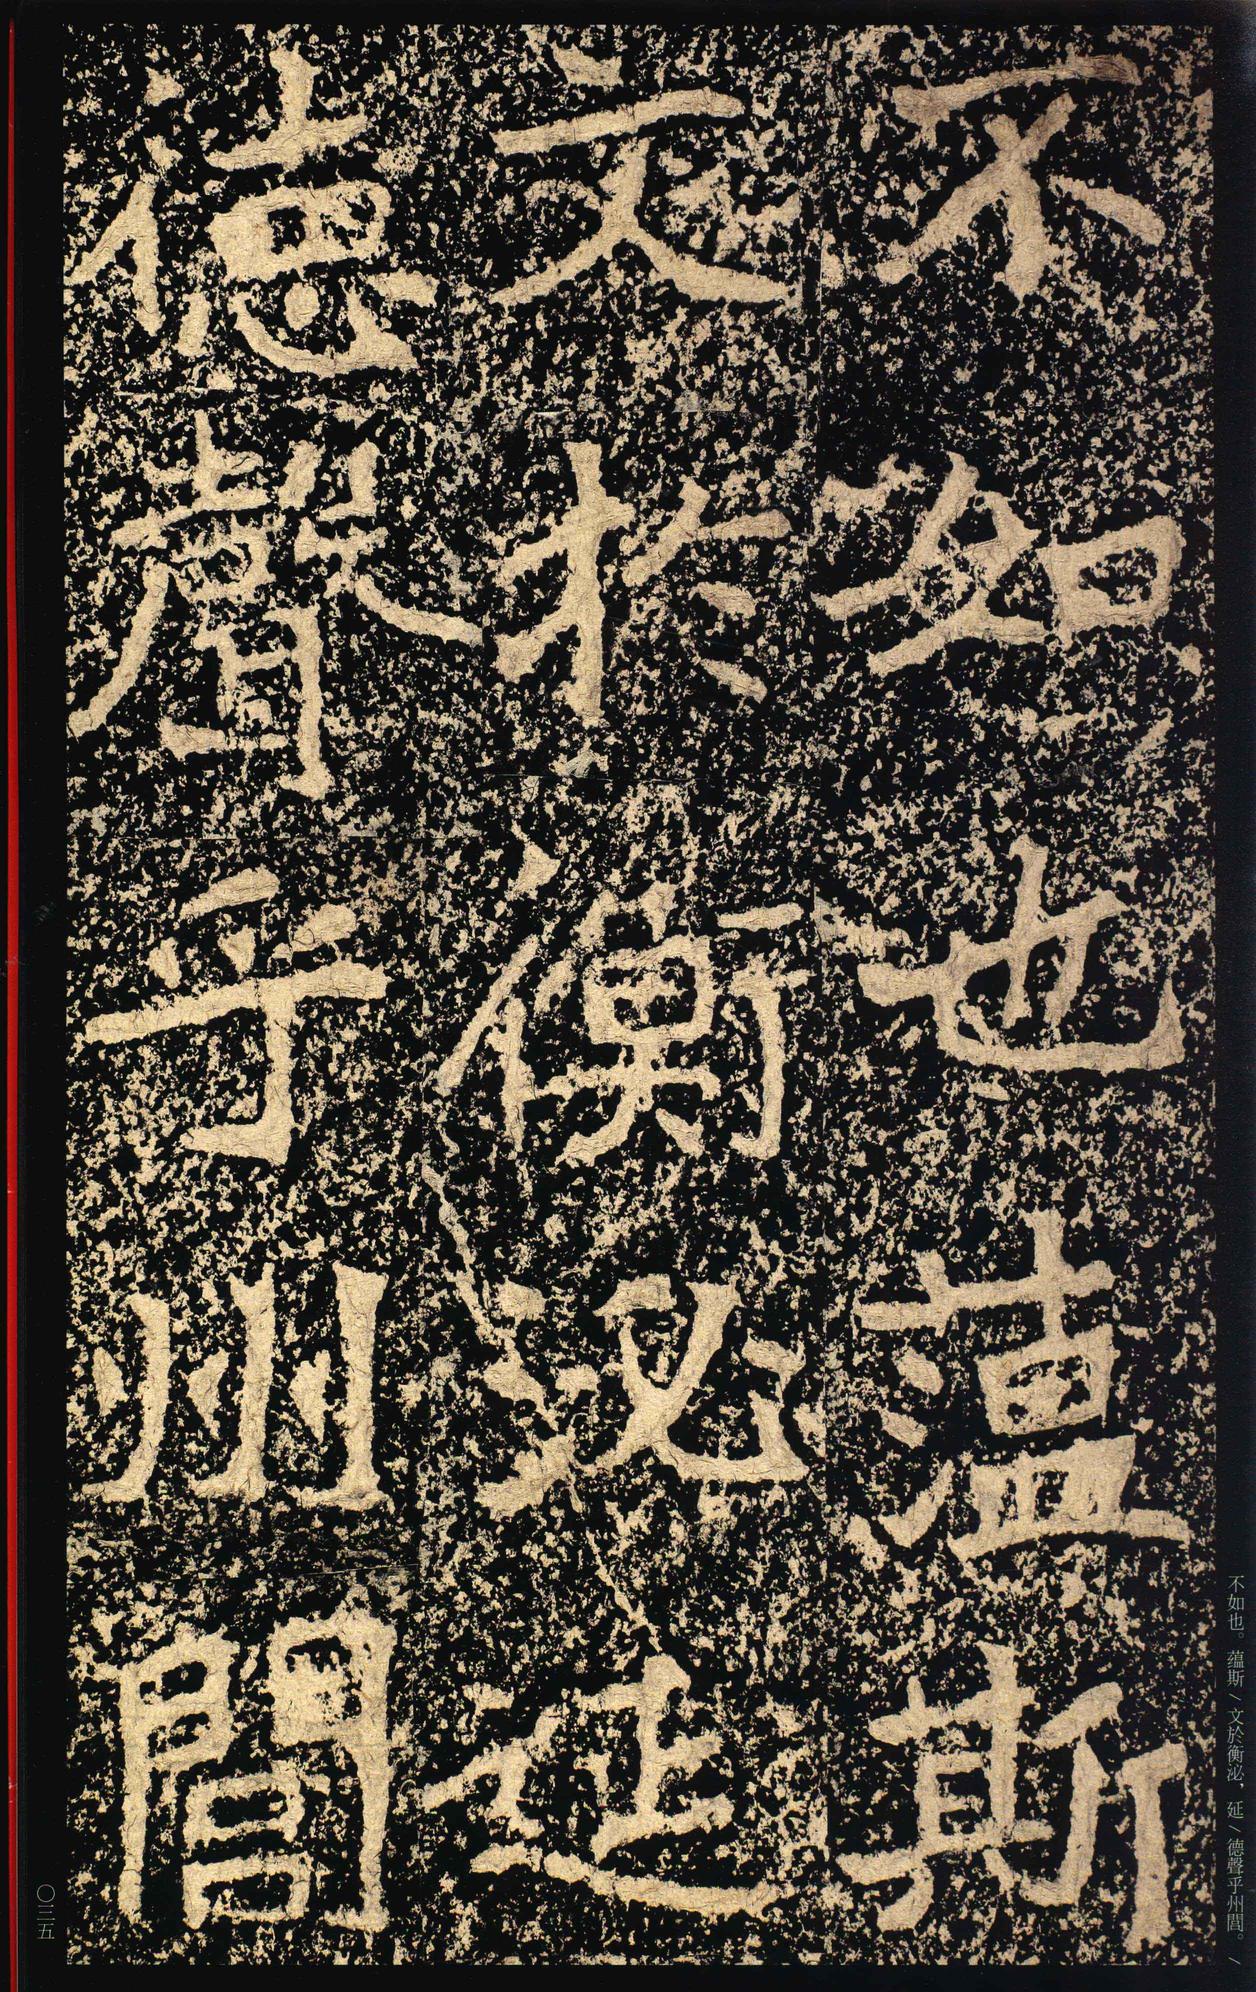 不如也藴斯
文於衡泌延
德聲乎州閭
不如也。蕴斯／文於衡泌，延／德聲乎州閭。／
〇三五